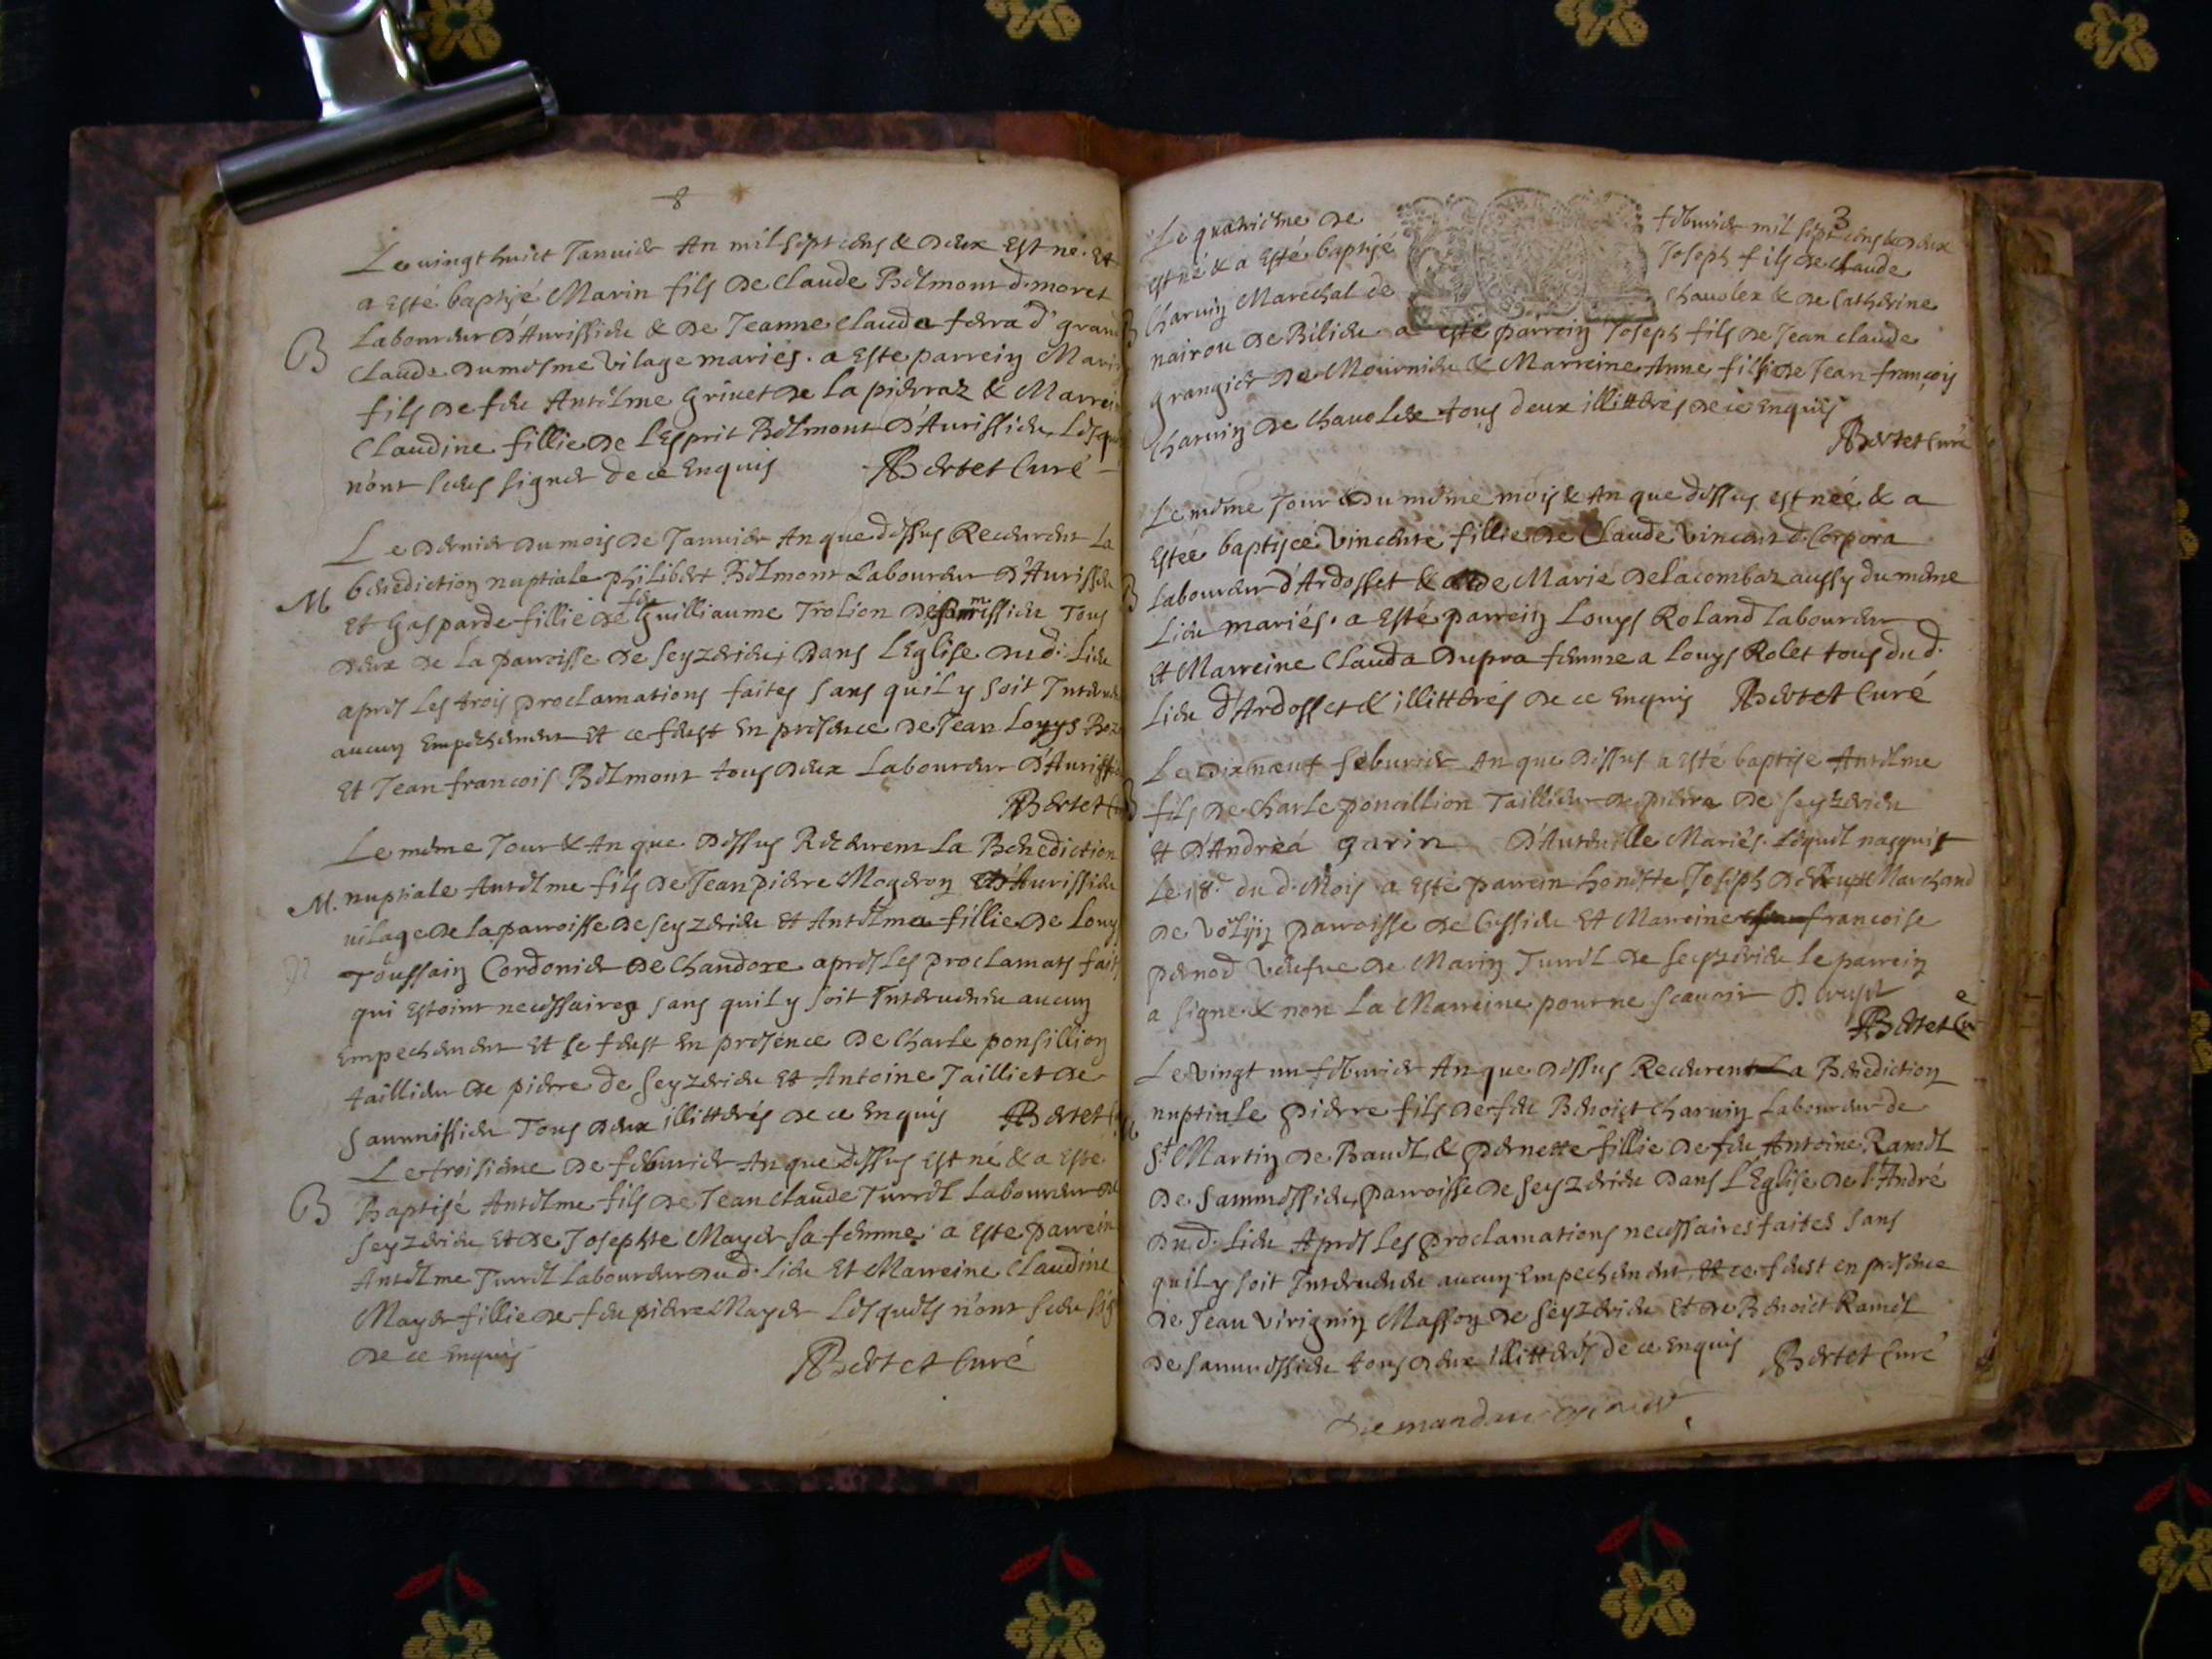 8
Le uingt huict Januier An mil sept cens & deux Est né. Et
a Esté baptisé Marin fils de Claude Belmont d. moret
Laboureur d'Aurissieu & de Jeanne Clauda ferra d' grand
B
Claude du mesme vilage mariés. a Este parrein Marin
fils de feu Antelme Grinet de la pierraz & Marrein
Claudine fillie de l'Esprit Belmont d'Aurissieu, Lesqu
n'ont sceus signer de ce Enquis ABertet Curé
Le dernier du mois de Januier An que dessus Receurent La
M benediction nuptiale philibert Belmont Laboureur d'Aurissieu
feu
Et Gasparde fillie de Guilliaume Trolion de Tous
deux de la parroisse de seyzerieu; dans L'Eglise dud. Lieu
apres Les trois proclamations faites sans quil y soit Interuenu
aucun Empechement Et ce feust En presence de Jean Louys
Et Jean francois Belmont tous deux Laboureur d'Aurissieu
ABertet
Le mesme Jour & An que dessus Receurent La Benediction
M. nuptiale Antelme fils de Jean pierre Mogeron d'Aurissieu
uilage de la parroisse de seyzerieu Et Antelma fillie de Louy
Toussain Cordonier de Chandore apres Les proclamats fait
qui Estoint necessaires sans quil y soit Interuenu aucun
Empechement Et se feust En presence de Charle ponsillion
taillieur de pierre de seyzerieu Et Antoine Tailliet de
sammissieu Tous deux illitterés de ce Enquis ABertet
Le troisieme de feburier An que dessus Est né & a Esté
B Baptisé Antelme fils de Jean Claude Turrel Laboureur de
seyzerieu Et de Josephte Mayer sa femme, a Este parrein
Antelme Turrel Laboureur dud. Lieu Et Marreine Claudine
Mayer fillie de feu pierre Mayer Lesquels n'ont sceu sig
de ce Enquis ABertet Curé
3
Le quatrieme de feburier mil sept cens & deux
est né & a Esté baptisé Joseph fils de Claude
Charuin Marechal de Chauolex & de Catherine
nairou de Bilieu. a esté parrein Joseph fils de Jean Claude
grangier de Mournieu & Marreine Anne fillie de Jean françois
Charuin de Chauolex tous deux illitterés de ce Enquis
ABertet Curé
Le mesme Jour & du mesme mois & An que dessus est née & a
Estée baptisée Vincente fillie de Claude Vincent d. Corpora
B Laboureur d'Ardosset & de Marie de lacombaz aussy du mesme
Lieu mariés. a Esté parrein Louys Roland Laboureur
Et Marreine Clauda Dupra femme a Louys Rolet tous dud.
Lieu d'Ardosset & illitterés de ce Enquis ABertet Curé
Le dix neuf feburier An que dessus a Esté baptise Antelme
B fils de Charle poncillion Taillieur de pierra de seyzerieu
Et d'Andréa garin d'Auteuille Mariés. Lequel nasquit
Le 18.e du d. Mois a Esté parrein honeste Joseph Marchand
de parroisse de Cessieu Et Marreine francoise
pernod Veufue de Marin Turrel de seyzerieu le parrein
a signe & non La Marreine pour ne scauoir
ABertet Cur
Le vingt un feburier An que dessus Receurent La Benediction
nuptiale pierre fils de feu Benoist Charuin Laboureur de
M St Martin de Bauel & pernette fillie de feu Antoine Ramel
de sammessieu, parroisse de seyzerieu dans L'Eglise de st André
dud. Lieu Apres Les proclamations necessaires faites sans
quil y soit Interuenu aucun Empechement, Et ce feust en presence
de Jean Virignin Masson de seyzerieu Et de Benoict Ramel
de sammessieu tous deux illitterés de ce Enquis ABertet Curé